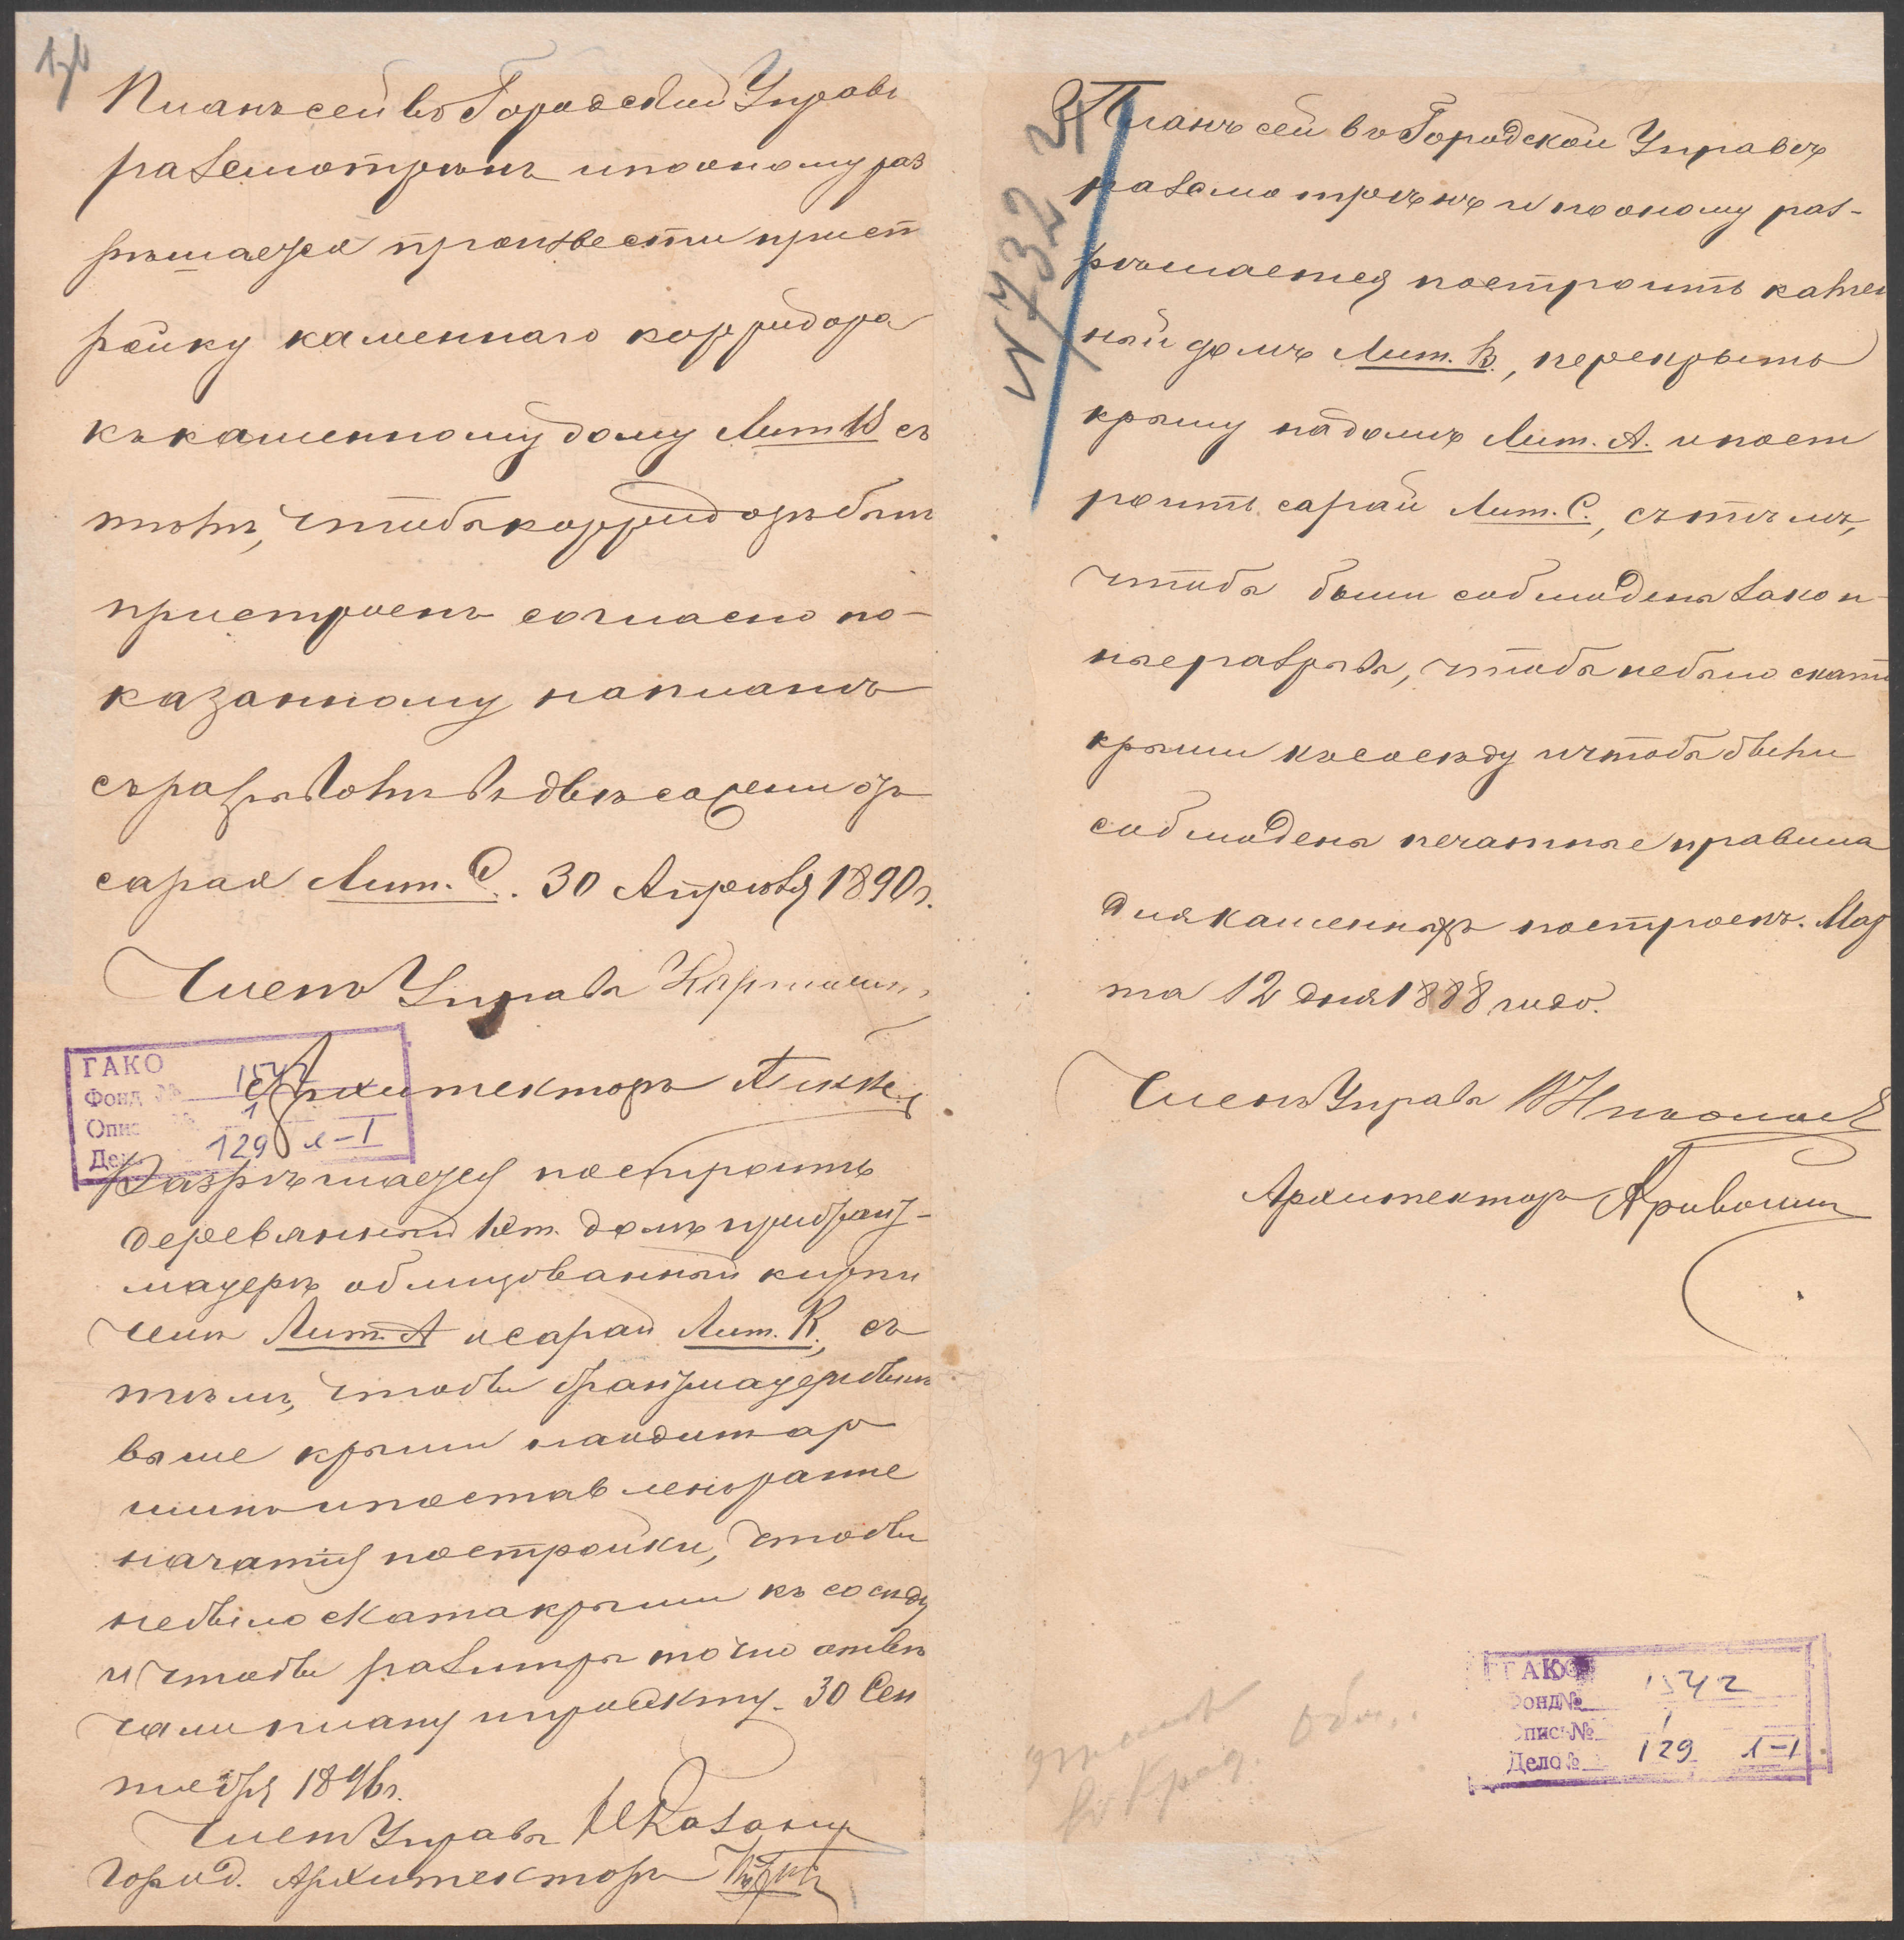 Планъ сей въ Городской Управѣ
разсмотрѣнъ и по оному раз
рѣшается произвести прист
ройку каменнаго корридора
къ каменному дому Лит В съ
тѣмъ, чтобы корридоръ былъ
пристроенъ согласно по-
казанному на планѣ
съ разрывомъ въ двѣ сажени отъ
сарая Лит. С. 30 Апрѣля 1890 г.
Членъ Управы
Архитекторъ
ГАКО
Фонд № 1542
Опис 1
Дел 129 л-1
Разрѣшается построить
деревянный 1 эт. домъ при бранд-
мауерѣ облицованный кирпи
чемъ Лит. А и сарай Лит. К, съ
тѣмъ, чтобы брандмауеръ былъ
выше крыши на одинъ ар
шинъ и поставленъ ранне
начатія постройки, чтобы
небыло ската крыши къ сосѣду
и чтобы размѣры точно отвѣ
чали плану и проэкту. 30 Сен
тября 1896 г.
Членъ Управы Казанц
Город. Архитекторъ
№ 732
Планъ сей въ Городской Управѣ
разсмотрѣнъ и по оному раз-
рѣшается построить камен
ный домъ Лит. В., перекрыть
крышу на домѣ Лит. А. и пост
роить сарай Лит. С., съ тѣмъ,
чтобы были соблюдены закон-
ные разрывы, чтобы небыло ската
крыши къ сосѣду и чтобы были
соблюдены печатные правила
для каменныхъ построекъ. Мар
та 12 дня 1888 года.
Членъ Управы Николаев
Архитекторъ Кривошеин
ГАКО
Фонд № 1542
Опись № 1
Дело № 129 л-1